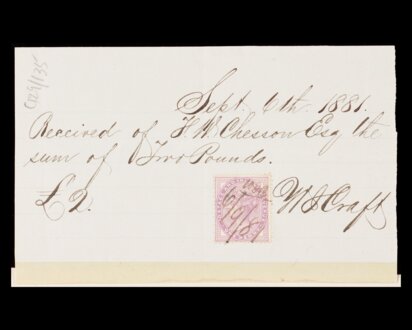 C129/135
Sept. 6th 1881.
Received of F W Chesson Esq the
sum of Two Pounds.
£2.
W S Craft
6/9/81